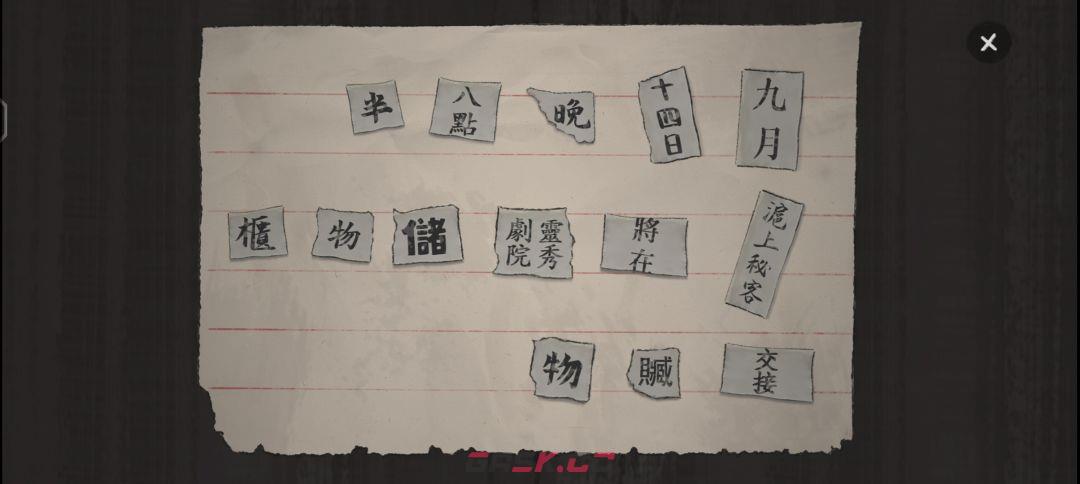 九月 十四日 晚 八點 半
滬上秘客 將在 靈秀劇院 儲 物 櫃
交接 贓 物